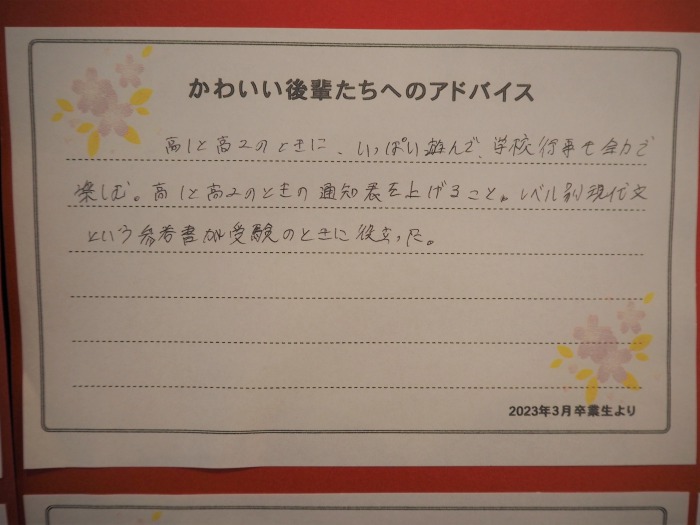 かわいい後輩たちへのアドバイス
高1と高2のときに、いっぱい遊んで、学校行事も全力で
楽しむ。高1と高2のときの通知表を上げること。レベル別現代文
という参考書が受験のときに役立った。
2023年3月卒業生より